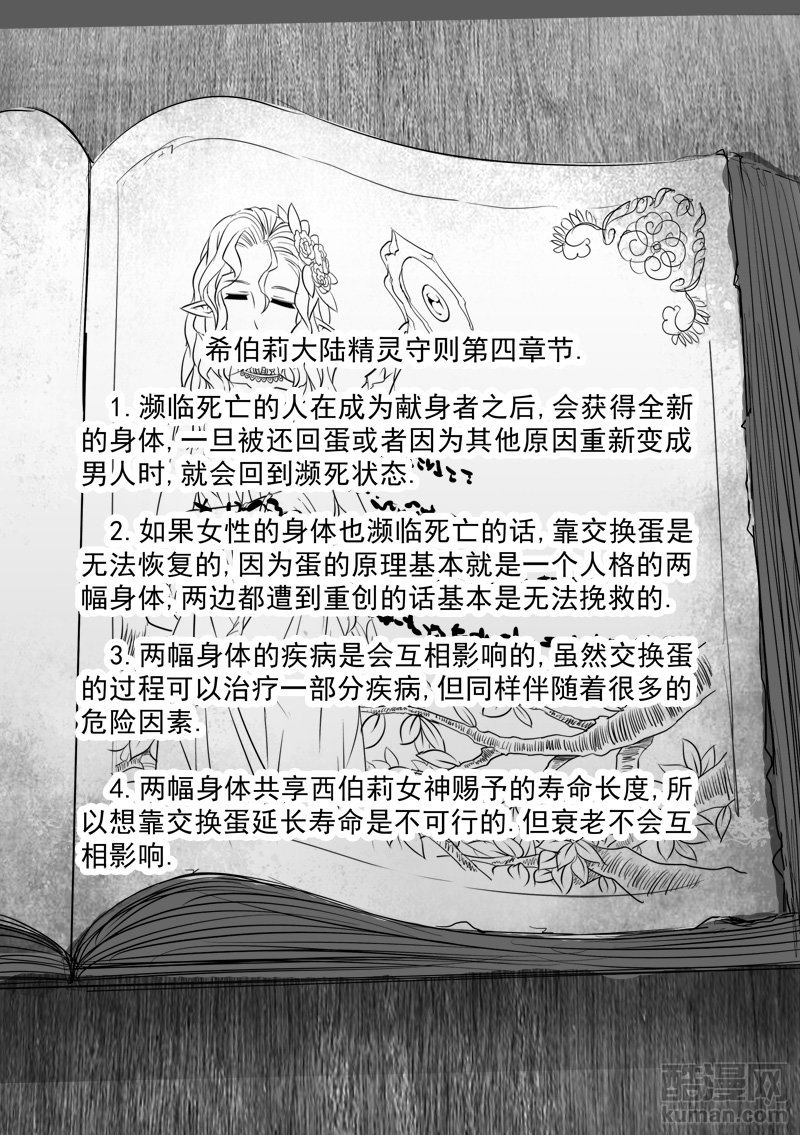 希伯莉大陆精灵守则第四章节.
1. 濒临死亡的人在成为献身者之后,会获得全新
的身体,一旦被还回蛋或者因为其他原因重新变成
男人时,就会回到濒死状态.
2. 如果女性的身体也濒临死亡的话,靠交换蛋是
无法恢复的,因为蛋的原理基本就是一个人格的两
幅身体,两边都遭到重创的话基本是无法挽救的.
3. 两幅身体的疾病是会互相影响的,虽然交换蛋
的过程可以治疗一部分疾病,但同样伴随着很多的
危险因素.
4. 两幅身体共享西伯莉女神赐予的寿命长度,所
以想靠交换蛋延长寿命是不可行的.但衰老不会互
相影响.
酷漫网
kuman.com